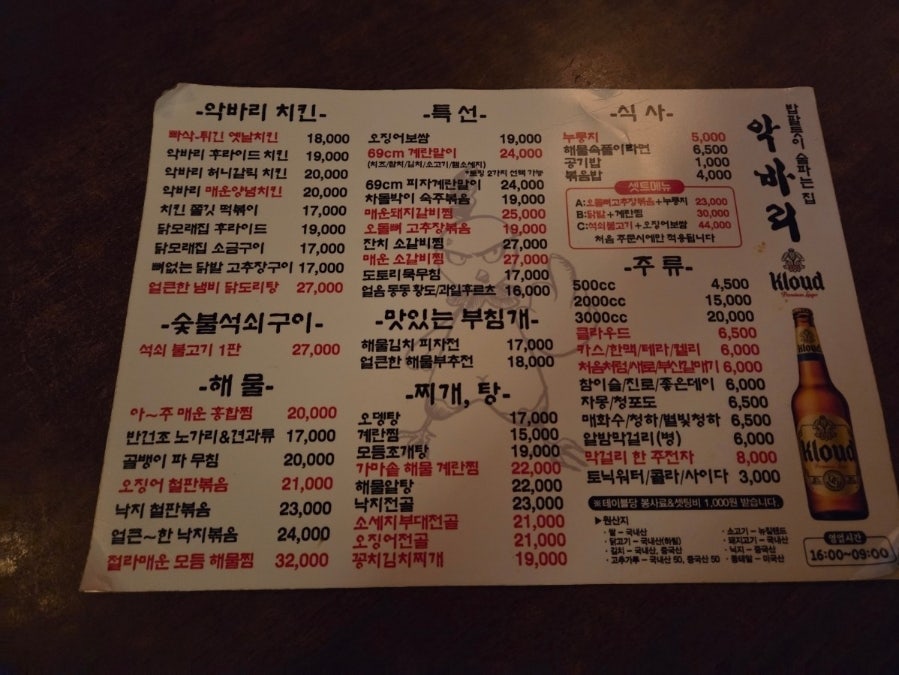 -악바리 치킨-
빠삭-튀긴 옛날치킨 18,000
악바리 후라이드 치킨 19,000
악바리 허니갈릭 치킨 20,000
악바리 매운양념치킨 20,000
치킨 쫄깃 떡볶이 17,000
닭모래집 후라이드 19,000
닭모래집 소금구이 17,000
뼈없는 닭발 고추장구이 17,000
얼큰한 냄비 닭도리탕 27,000
-숯불석쇠구이-
석쇠 불고기 1판 27,000
-해 물-
아~주 매운 홍합찜 20,000
반건조 노가리&견과류 17,000
골뱅이 파 무침 20,000
오징어 철판볶음 21,000
낙지 철판볶음 23,000
얼큰~한 낙지볶음 24,000
절라매운 모듬 해물찜 32,000
-특 선-
오징어보쌈 19,000
69cm 계란말이 24,000
(치즈/참치/김치/소고기/햄소세지)
*토핑 2가지 선택 가능
69cm 피자계란말이 24,000
차돌박이 숙주볶음 19,000
매운돼지갈비찜 25,000
오돌뼈 고추장볶음 19,000
잔치 소갈비찜 27,000
매운 소갈비찜 27,000
도토리묵무침 17,000
얼음 동동 황도/과일후르츠 16,000
-맛있는 부침개-
해물김치 피자전 17,000
얼큰한 해물부추전 18,000
-찌개, 탕-
오뎅탕 17,000
계란찜 15,000
모듬조개탕 19,000
가마솥 해물 계란찜 22,000
해물알탕 22,000
낙지전골 23,000
소세지부대전골 21,000
오징어전골 21,000
꽁치김치찌개 19,000
-식 사-
누룽지 5,000
해물속풀이라면 6,500
공기밥 1,000
볶음밥 4,000
셋트메뉴
A:오돌뼈고추장볶음+누룽지 23,000
B:닭발+계란찜 30,000
C:석쇠불고기+오징어보쌈 44,000
처음 주문시에만 적용됩니다
-주 류-
500cc 4,500
2000cc 15,000
3000cc 20,000
클라우드 6,500
카스/한맥/테라/켈리 6,000
처음처럼/새로/부산갈매기 6,000
참이슬/진로/좋은데이 6,000
자몽/청포도 6,500
매화수/청하/별빛청하 6,500
알밤막걸리(병) 6,000
막걸리 한 주전자 8,000
토닉워터/콜라/사이다 3,000
※테이블당 봉사료&셋팅비 1,000원 받습니다.
▶원산지
· 쌀 - 국내산
· 닭고기 - 국내산(하림)
· 김치 - 국내산, 중국산
· 고추가루 - 국내산 50, 중국산 50
· 소고기 - 뉴질랜드
· 돼지고기 - 국내산
· 낙지 - 중국산
· 동태알 - 미국산
밥팔듯이 술파는 집
악바리
Kloud
Premium Lager
Kloud
Kloud
영업시간
16:00~09:00